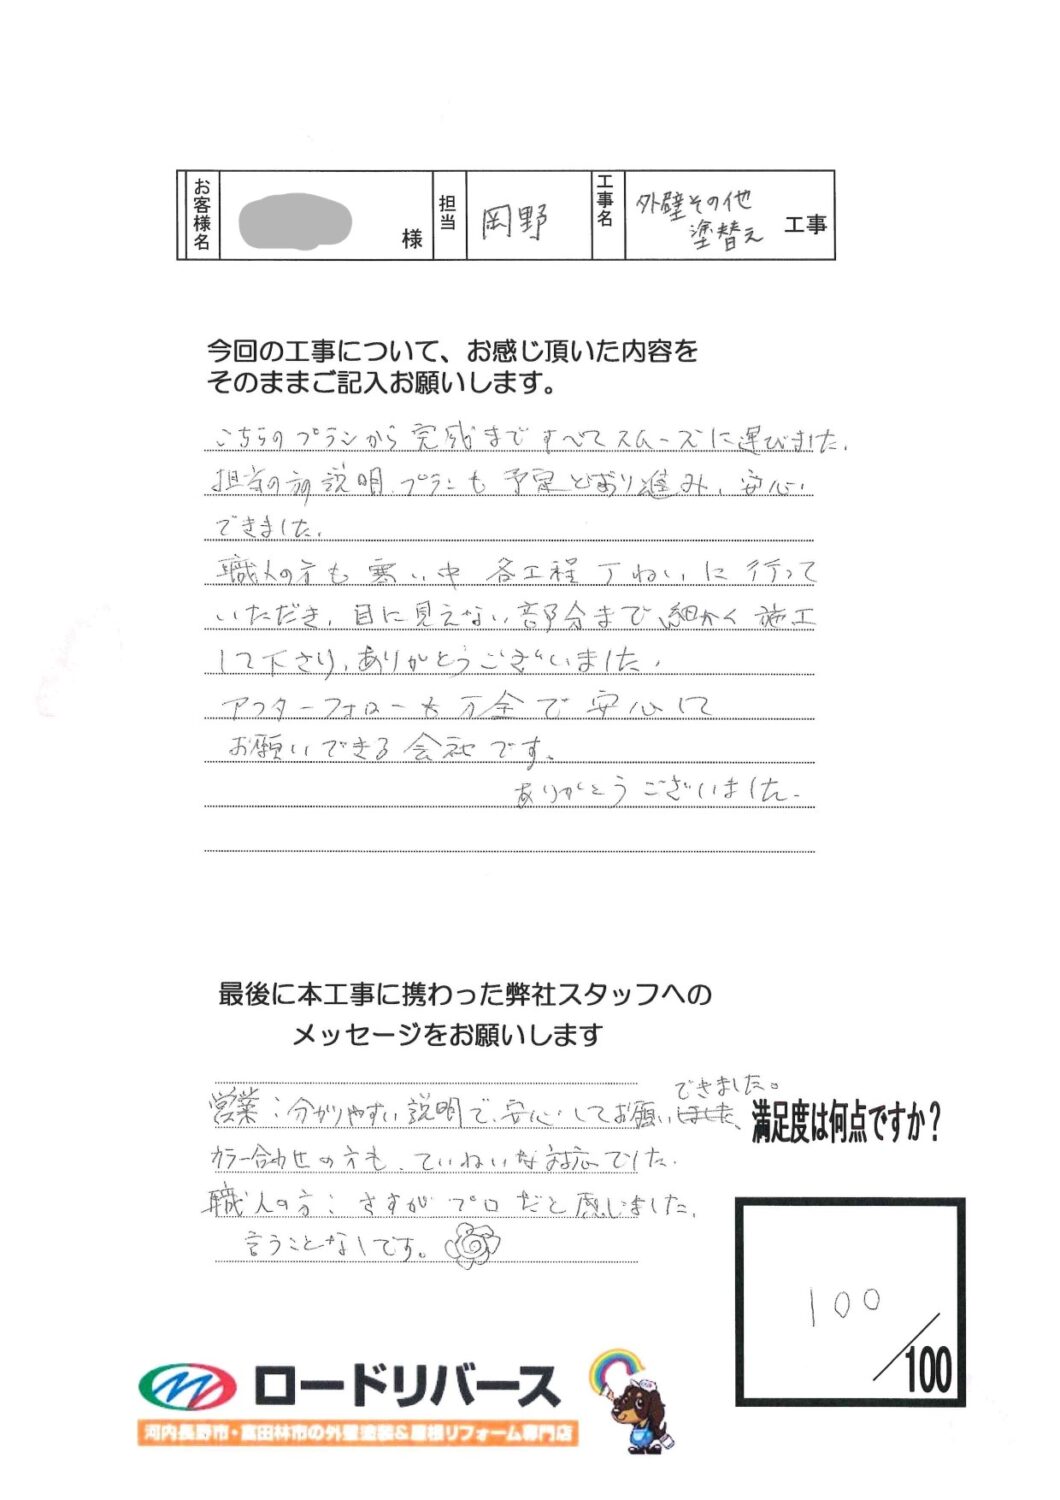 お客様名 様 担当 岡野 工事名 外壁その他 塗替え 工事
今回の工事について、お感じ頂いた内容を
そのままご記入お願いします。
こちらのプランから完成まですべてスムーズに運びました。
担当の方の説明、プランも予定どおり進み、安心
できました。
職人の方も寒い中各工程丁ねいに行って
いただき、目に見えない部分まで細かく施工
して下さり、ありがとうございました。
アフターフォローも万全で安心して
お願いできる会社です。
ありがとうございました。
最後に本工事に携わった弊社スタッフへの
メッセージをお願いします
できました。
営業:分かりやすい説明で、安心してお願いしました、
満足度は何点ですか?
カラー合わせの方も、ていねいな対応でした。
職人の方:さすがプロだと感じました。
言うことなしです。
100
/100
ロードリバース
河内長野市・富田林市の外壁塗装&屋根リフォーム専門店